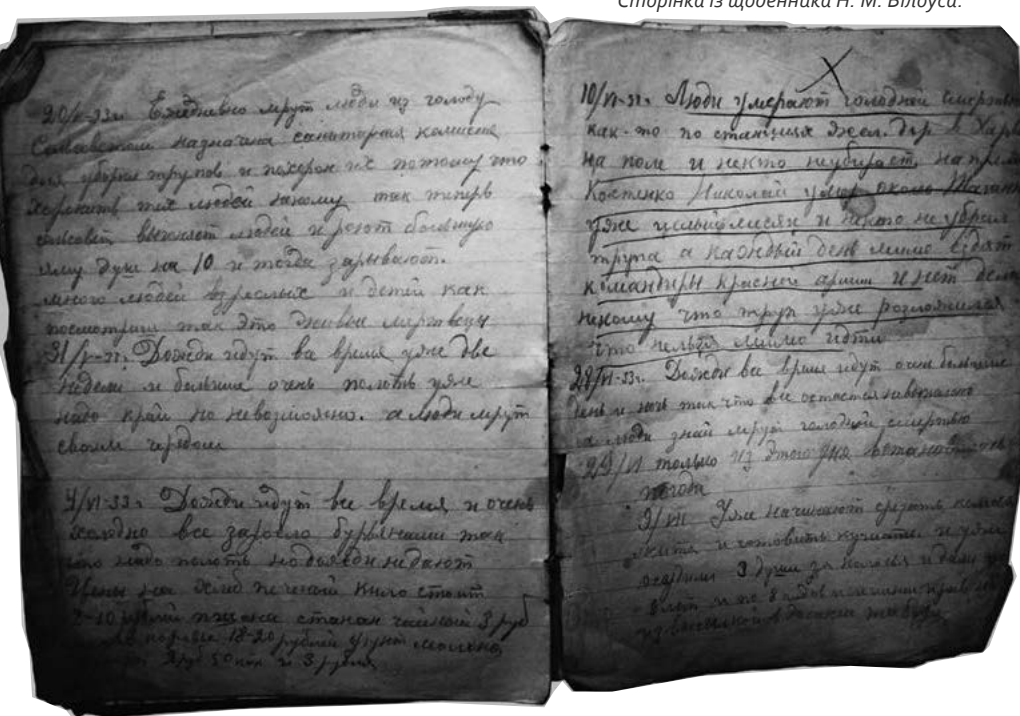 Сторінка із щоденника Н. М. Білоуса.
20/V-33г. Ежедневно мрут люди из голоду
Сельсоветом назначина санитарная
для уборки трупов и похорон их потому что
хоронить тех людей никому так теперь
выжняет людей и роют большую
яму душ на 10 и тогда зарывают.
много людей взрослых и детей как
посмотриш так это живые мертвецы
31/V-33г. Дожди идут все время уже две
недели и большие очень полоть уже
надо край но невозможно. а люди мрут
своим чередом
4/VI-33г Дожди идут все время и очень
холодно все заросло бурьянами так
что надо полоть но дожди недают
Цены на хлеб печеный кило стоит
рублей пшона стакан чайный 3 руб
18-20 рублей фунт
2 руб 50 коп и 3 рубля
10/VI-33г Люди умерают голодной
как-то по станциях жел. дор. в
на поле и некто неубирает,
Костенко Николай умер около
уже целый месяц и некто не убрал
трупа а каждый день мимо едят
командиры красной армии и нет дела
некому что труп уже розложился
что нельзя мимо идти
28/VI-33г. Дожди все время идут очень большие
день и ночь так что все остается
а люди знай мрут голодной смертью
29/VI только из этого дня
погода
9/VII Уже начинают срезать
жита и готовить кушать и уже
осудили 3 души за колосья и дали